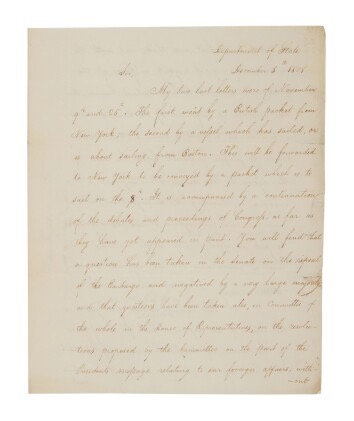 Department of State
December 5th 1808
Sir,
My two last letters were of November
9th and 25th. The first went by a British packet from
New York; the second by a vessel which has sailed, or
is about sailing from Boston. This will be forwarded
to New York to be conveyed by a packet which is to
sail on the 8th. It is accompanied by a continuation
of the debates and proceedings of Congress as far as
they have yet appeared in print. You will find that
a question has been taken in the Senate on the repeal
of the Embargo and negatived by a very large majority
and that questions have been taken also, in Committee of
the whole in the House of Representatives, on the resolu-
tions proposed by the Committee on the part of the
Presidents message relating to our foreign affairs, with-
-out